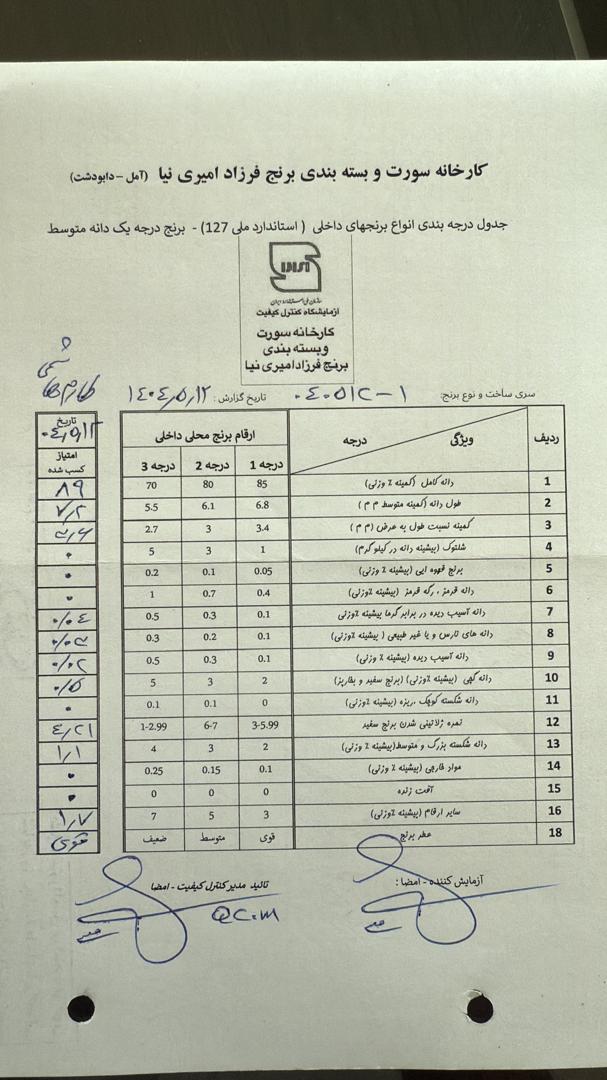 کارخانه سورت و بسته بندی برنج فرزاد امیری نیا (آمل – دابودشت)
جدول درجه بندی انواع برنجهای داخلی ( استاندارد ملی 127) - برنج درجه یک دانه متوسط
آزمایشگاه کنترل کیفیت
کارخانه سورت
وبسته بندی
برنج فرزادامیری نیا
طارم هاشمی
سری ساخت و نوع برنج: تاریخ گزارش : ۱۴۰۴٫۵٫۱۲
ردیف ویژگی درجه ارقام برنج محلی داخلی تاریخ
درجه 1 درجه 2 درجه 3 امتیاز کسب شده
1 دانه کامل (کمینه ٪ وزنی) 85 80 70 ۸۹
2 طول دانه (کمینه متوسط م م ) 6.8 6.1 5.5 ۷٫۲
3 کمینه نسبت طول به عرض (م م ) 3.4 3 2.7
4 شلتوک (بیشینه دانه در کیلوگرم) 1 3 5 ۰
5 برنج قهوه ایی (بیشینه ٪ وزنی) 0.05 0.1 0.2 ۰
6 دانه قرمز ، رگه قرمز (بیشینه ٪ وزنی) 0.4 0.7 1 ۰
7 دانه آسیب دیده در برابر گرما بیشینه ٪وزنی 0.1 0.3 0.5 ۰/۰۴
8 دانه های نارس و یا غیر طبیعی ( بیشینه ٪وزنی) 0.1 0.2 0.3
9 دانه آسیب دیده (بیشینه ٪ وزنی) 0.1 0.3 0.5 ۰/۰۲
10 دانه گچی (بیشینه٪ وزنی) (برنج سفید و بخارپز) 2 3 5 ۰/۵
11 دانه شکسته کوچک ،ریزه (بیشینه ٪وزنی) 0 0.1 0.1 ۰
12 نمره ژلاتینی شدن برنج سفید 3-5.99 6-7 1-2.99 ۴٫۲۱
13 دانه شکسته بزرگ و متوسط(بیشینه ٪ وزنی) 2 3 4 ۱٫۱
14 مواد خارجی (بیشینه ٪ وزنی) 0.1 0.15 0.25 ۰
15 آفت زنده 0 0 0 ۰
16 سایر ارقام (بیشینه ٪وزنی) 3 5 7 ۱٫۷
18 عطر برنج قوی متوسط ضعیف قوی
آزمایش کننده - امضا : تائید مدیر کنترل کیفیت - امضا
QC.M